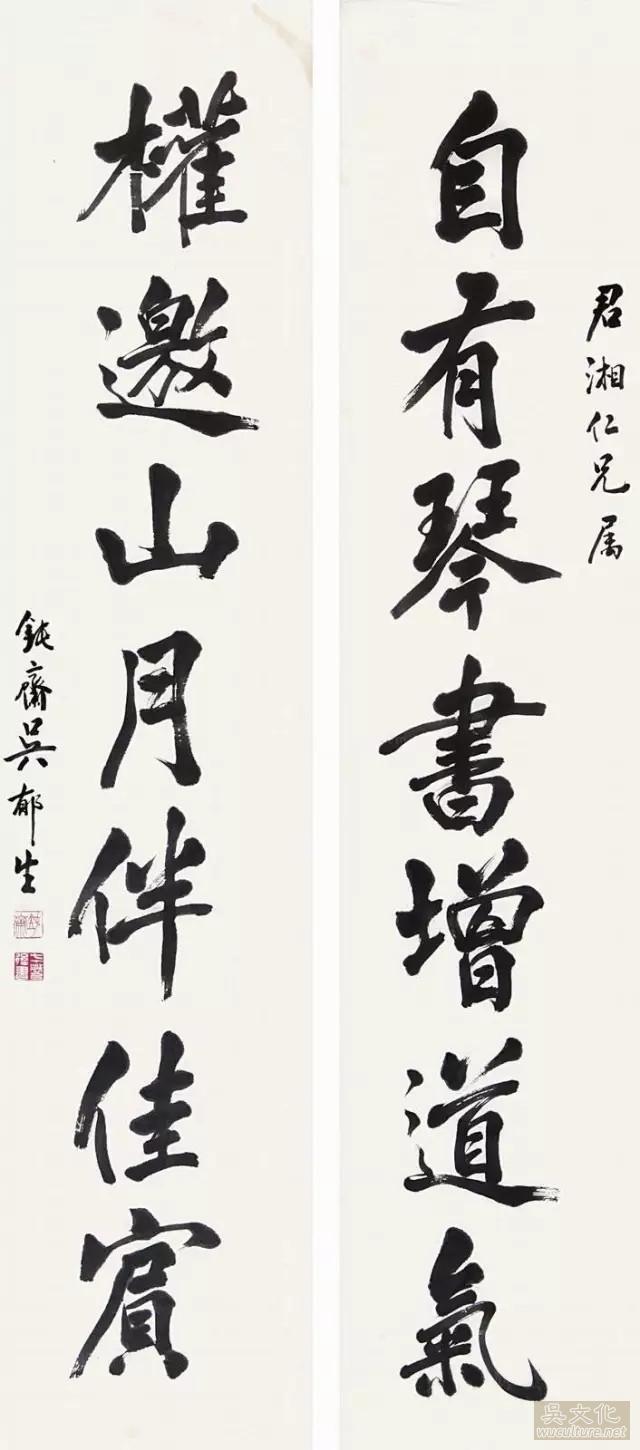 君湘仁兄属
自有琴書增道氣
權邀山月伴佳賓
鈍齋吴郁生
吳文化
wuculture.net